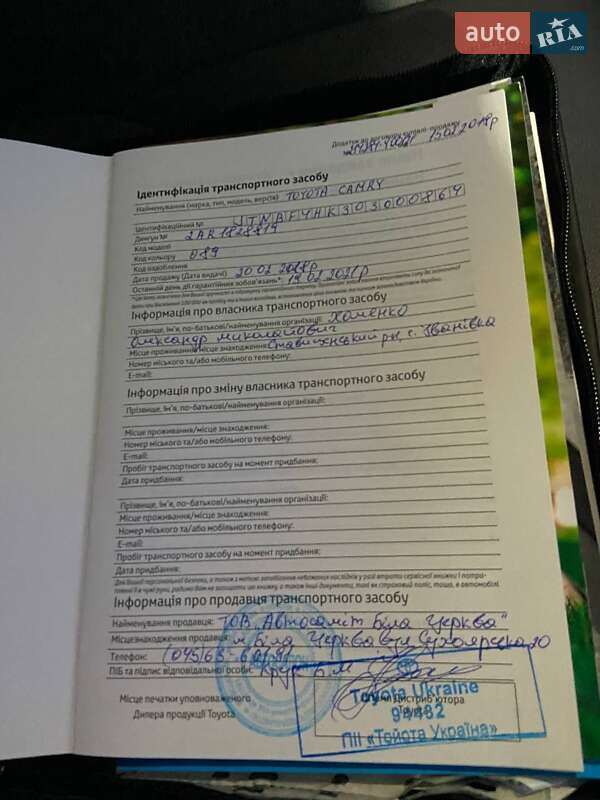 auto RIA .com
Додаток до договору купівлі-продажу
№ 15.02.2018р
Ідентифікація транспортного засобу
Найменування (марка, тип, модель, версія) TOYOTA CAMRY
Ідентифікаційний № JTNBF4HK303000864
Двигун № 2AR1828819
Код моделі
Код кольору 089
Код оздоблення
Дата продажу (Дата видачі) 20.02.2018р
Останній день дії гарантійних зобов'язань* 19.02.2021р
Інформація про власника транспортного засобу
Прізвище, Ім'я, по-батькові/найменування організації: Хоменко
Олександр Миколайович
Місце проживання/місце знаходження: Ставищенський р-н, с. Іванівка
Номер міського та/або мобільного телефону:
E-mail:
Інформація про зміну власника транспортного засобу
Прізвище, Ім'я, по-батькові/найменування організації:
Місце проживання/місце знаходження:
Номер міського та/або мобільного телефону:
E-mail:
Пробіг транспортного засобу на момент придбання:
Дата придбання:
Прізвище, Ім'я, по-батькові/найменування організації:
Місце проживання/місце знаходження:
Номер міського та/або мобільного телефону:
E-mail:
Пробіг транспортного засобу на момент придбання:
Дата придбання:
Для Вашої персональної безпеки, а також з метою запобігання небажаних наслідків у разі втрати сервісної книжки і потра-
плянні її в чужі руки, радимо Вам не залишати цю книжку, а також інші документи, такі як страховий поліс, тощо, в автомобілі.
Інформація про продавця транспортного засобу
Найменування продавця: ТОВ „Автосаміт Біла Церква"
Місцезнаходження продавця: м. Біла Церква вул Сухоярська 20
Телефон:
ПІБ та підпис відповідальної особи:
Місце печатки уповноваженого
Дилера продукції Toyota
Toyota Ukraine
94482
ПІІ «Тойота Україна»